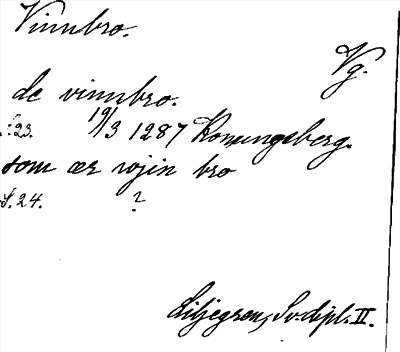 Vinnbro.
Vg.
de vinnbro.
S. 23. 19/3 1287 Konungsberg.
som ær vpin bro
S. 24. ?
Liljegren, Sv. dipl. II.